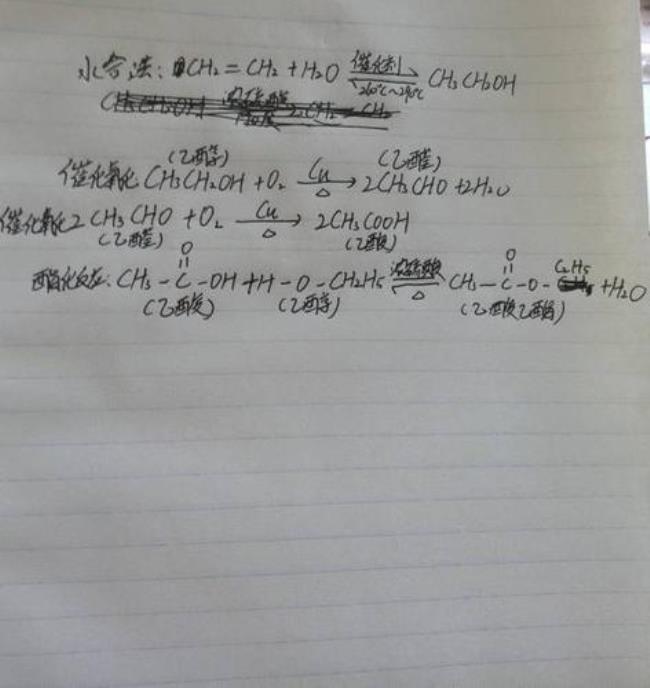 水合法: CH₂ = CH₂ + H₂O 催化剂 260℃~290℃ CH₃CH₂OH
(乙醇) (乙醛)
催化氧化 CH₃CH₂OH + O₂ Cu △ → 2CH₃CHO + 2H₂O
催化氧化 2CH₃CHO + O₂ Cu △ → 2CH₃COOH
(乙醛) (乙酸)
O O
酯化反应: CH₃ - C - OH + H - O - CH₂H₅ 浓硫酸 △ CH₃ - C - O - C₂H₅ + H₂O
(乙酸) (乙醇) (乙酸乙酯)